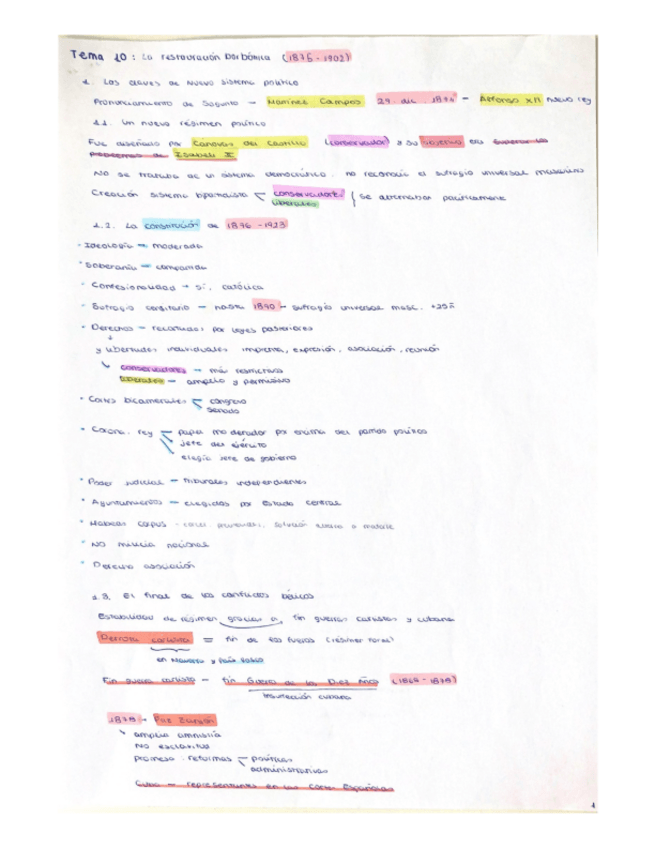 Tema 10: La restauración Borbónica (1875-1902)
1. Las claves de Nuevo sistema político
Pronunciamiento de Sagunto - Martínez Campos 29 dic 1874 - Alfonso XII nuevo rey
1.1. Un nuevo régimen político
Fue diseñado por Cánovas del Castillo (conservador) y su objetivo era superar los
problemas de Isabel II
No se trataba de un sistema democrático. no reconocía el sufragio universal masculino
Creación sistema bipartidista conservadores
liberales
se alternaban pacíficamente
1.2. La constitución de 1876-1923
· Ideología - moderada
· Soberanía - compartida
· Confesionalidad → sí, católica
· Sufragio censitario - hasta 1890 - sufragio universal masc. +25
· Derechos - por leyes posteriores
y libertades individuales imprenta, expresión, asociación, reunión
conservadores - más restrictivo
liberales - amplio y permisivo
· Cortes bicamerales congreso
senado
· Corona. rey papel moderador por encima del partido político
jefe del ejército
elegía jefe de gobierno
· Poder judicial - tribunales independientes
· Ayuntamientos - elegidos por Estado central
· Habeas corpus -
· NO milicia nacional
· Derecho asociación
1.3. El final de los conflictos bélicos
Estabilidad de régimen gracias a fin guerras carlistas y cubana
Derrota carlista = fin de los fueros (régimen foral)
en Navarra y País Vasco
Fin guerra carlista - fin Guerra de los Diez Años (1868-1878)
Insurrección cubana
1878 - Paz Zanjón
amplia amnistía
NO esclavitud
promesa reformas políticas
administrativas
Cuba - representantes en las Cortes Españolas
1